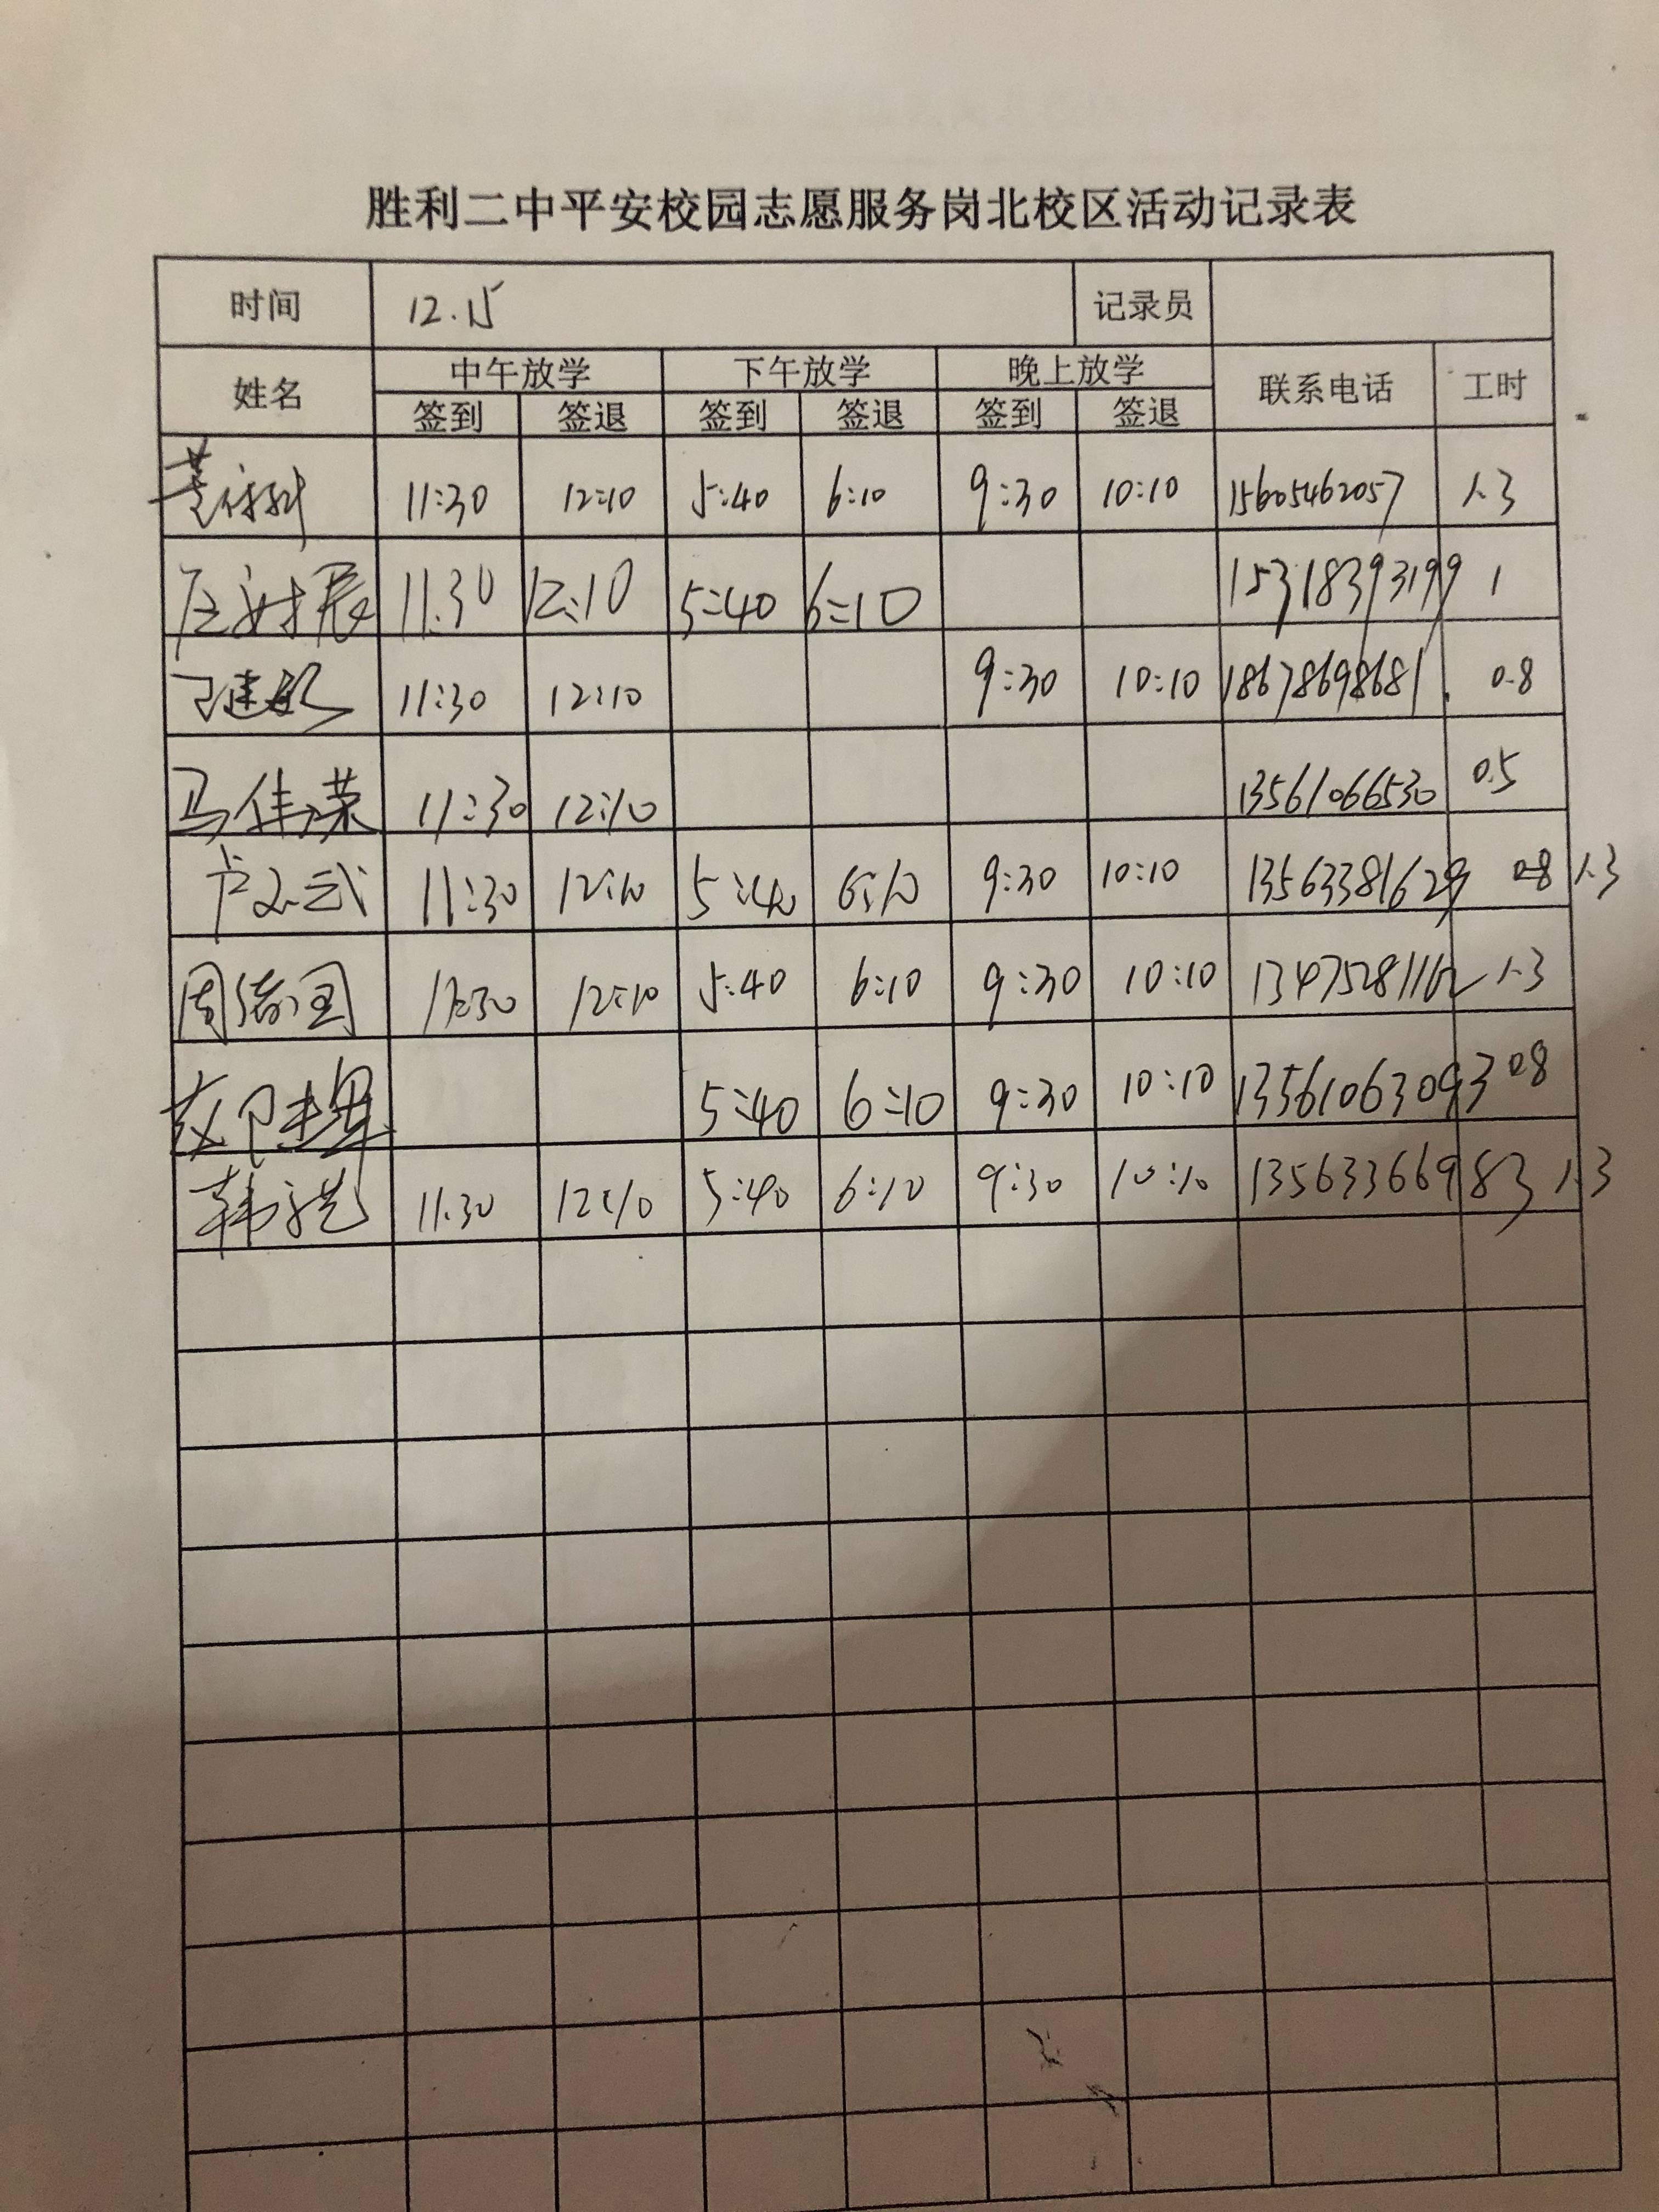 胜利二中平安校园志愿服务岗北校区活动记录表
时间 12.15 记录员
姓名 中午放学 下午放学 晚上放学 联系电话 工时
签到 签退 签到 签退 签到 签退
11:30 12:10 5:40 6:10 9:30 10:10 15605462057 1.3
11:30 12:10 5:40 6:10 15318393199 1
11:30 12:10 9:30 10:10 18678698681 0.8
马佳荣 11:30 12:10 13561066530 0.5
11:30 12:10 5:40 6:10 9:30 10:10 13563381629 1.3
周绪国 11:30 12:10 5:40 6:10 9:30 10:10 13475281162 1.3
5:40 6:10 9:30 10:10 13561063093 0.8
11:30 12:10 5:40 6:10 9:30 10:10 13563366983 1.3